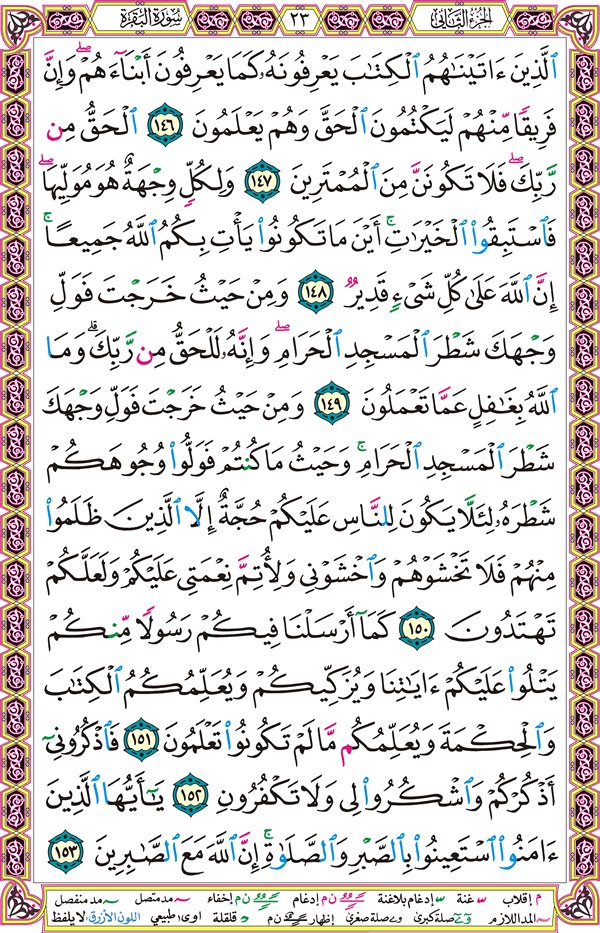 الجزء الثاني ٢٣ سورة البقرة
ٱلَّذِينَ ءَاتَيۡنَٰهُمُ ٱلۡكِتَٰبَ يَعۡرِفُونَهُۥ كَمَا يَعۡرِفُونَ أَبۡنَآءَهُمۡۖ وَإِنَّ
فَرِيقٗا مِّنۡهُمۡ لَيَكۡتُمُونَ ٱلۡحَقَّ وَهُمۡ يَعۡلَمُونَ ١٤٦ ٱلۡحَقُّ مِن
رَّبِّكَۖ فَلَا تَكُونَنَّ مِنَ ٱلۡمُمۡتَرِينَ ١٤٧ وَلِكُلّٖ وِجۡهَةٌ هُوَ مُوَلِّيهَاۖ
فَٱسۡتَبِقُواْ ٱلۡخَيۡرَٰتِۚ أَيۡنَ مَا تَكُونُواْ يَأۡتِ بِكُمُ ٱللَّهُ جَمِيعًاۚ
إِنَّ ٱللَّهَ عَلَىٰ كُلِّ شَيۡءٖ قَدِيرٞ ١٤٨ وَمِنۡ حَيۡثُ خَرَجۡتَ فَوَلِّ
وَجۡهَكَ شَطۡرَ ٱلۡمَسۡجِدِ ٱلۡحَرَامِۖ وَإِنَّهُۥ لَلۡحَقُّ مِن رَّبِّكَۗ وَمَا
ٱللَّهُ بِغَٰفِلٍ عَمَّا تَعۡمَلُونَ ١٤٩ وَمِنۡ حَيۡثُ خَرَجۡتَ فَوَلِّ وَجۡهَكَ
شَطۡرَ ٱلۡمَسۡجِدِ ٱلۡحَرَامِۚ وَحَيۡثُ مَا كُنتُمۡ فَوَلُّواْ وُجُوهَكُمۡ
شَطۡرَهُۥ لِئَلَّا يَكُونَ لِلنَّاسِ عَلَيۡكُمۡ حُجَّةٌ إِلَّا ٱلَّذِينَ ظَلَمُواْ
مِنۡهُمۡ فَلَا تَخۡشَوۡهُمۡ وَٱخۡشَوۡنِي وَلِأُتِمَّ نِعۡمَتِي عَلَيۡكُمۡ وَلَعَلَّكُمۡ
تَهۡتَدُونَ ١٥٠ كَمَآ أَرۡسَلۡنَا فِيكُمۡ رَسُولٗا مِّنكُمۡ
يَتۡلُواْ عَلَيۡكُمۡ ءَايَٰتِنَا وَيُزَكِّيكُمۡ وَيُعَلِّمُكُمُ ٱلۡكِتَٰبَ
وَٱلۡحِكۡمَةَ وَيُعَلِّمُكُم مَّا لَمۡ تَكُونُواْ تَعۡلَمُونَ ١٥١ فَٱذۡكُرُونِيٓ
أَذۡكُرۡكُمۡ وَٱشۡكُرُواْ لِي وَلَا تَكۡفُرُونِ ١٥٢ يَٰٓأَيُّهَا ٱلَّذِينَ
ءَامَنُواْ ٱسۡتَعِينُواْ بِٱلصَّبۡرِ وَٱلصَّلَوٰةِۚ إِنَّ ٱللَّهَ مَعَ ٱلصَّٰبِرِينَ ١٥٣
م إقلاب غنة إدغام بلاغنة ن م إدغام ن م إخفاء مد متصل مد منفصل
المد اللازم صلة كبرى صلة صغرى إظهار ن م قلقلة اوى: طبيعي اللون الأزرق: لا يلفظ